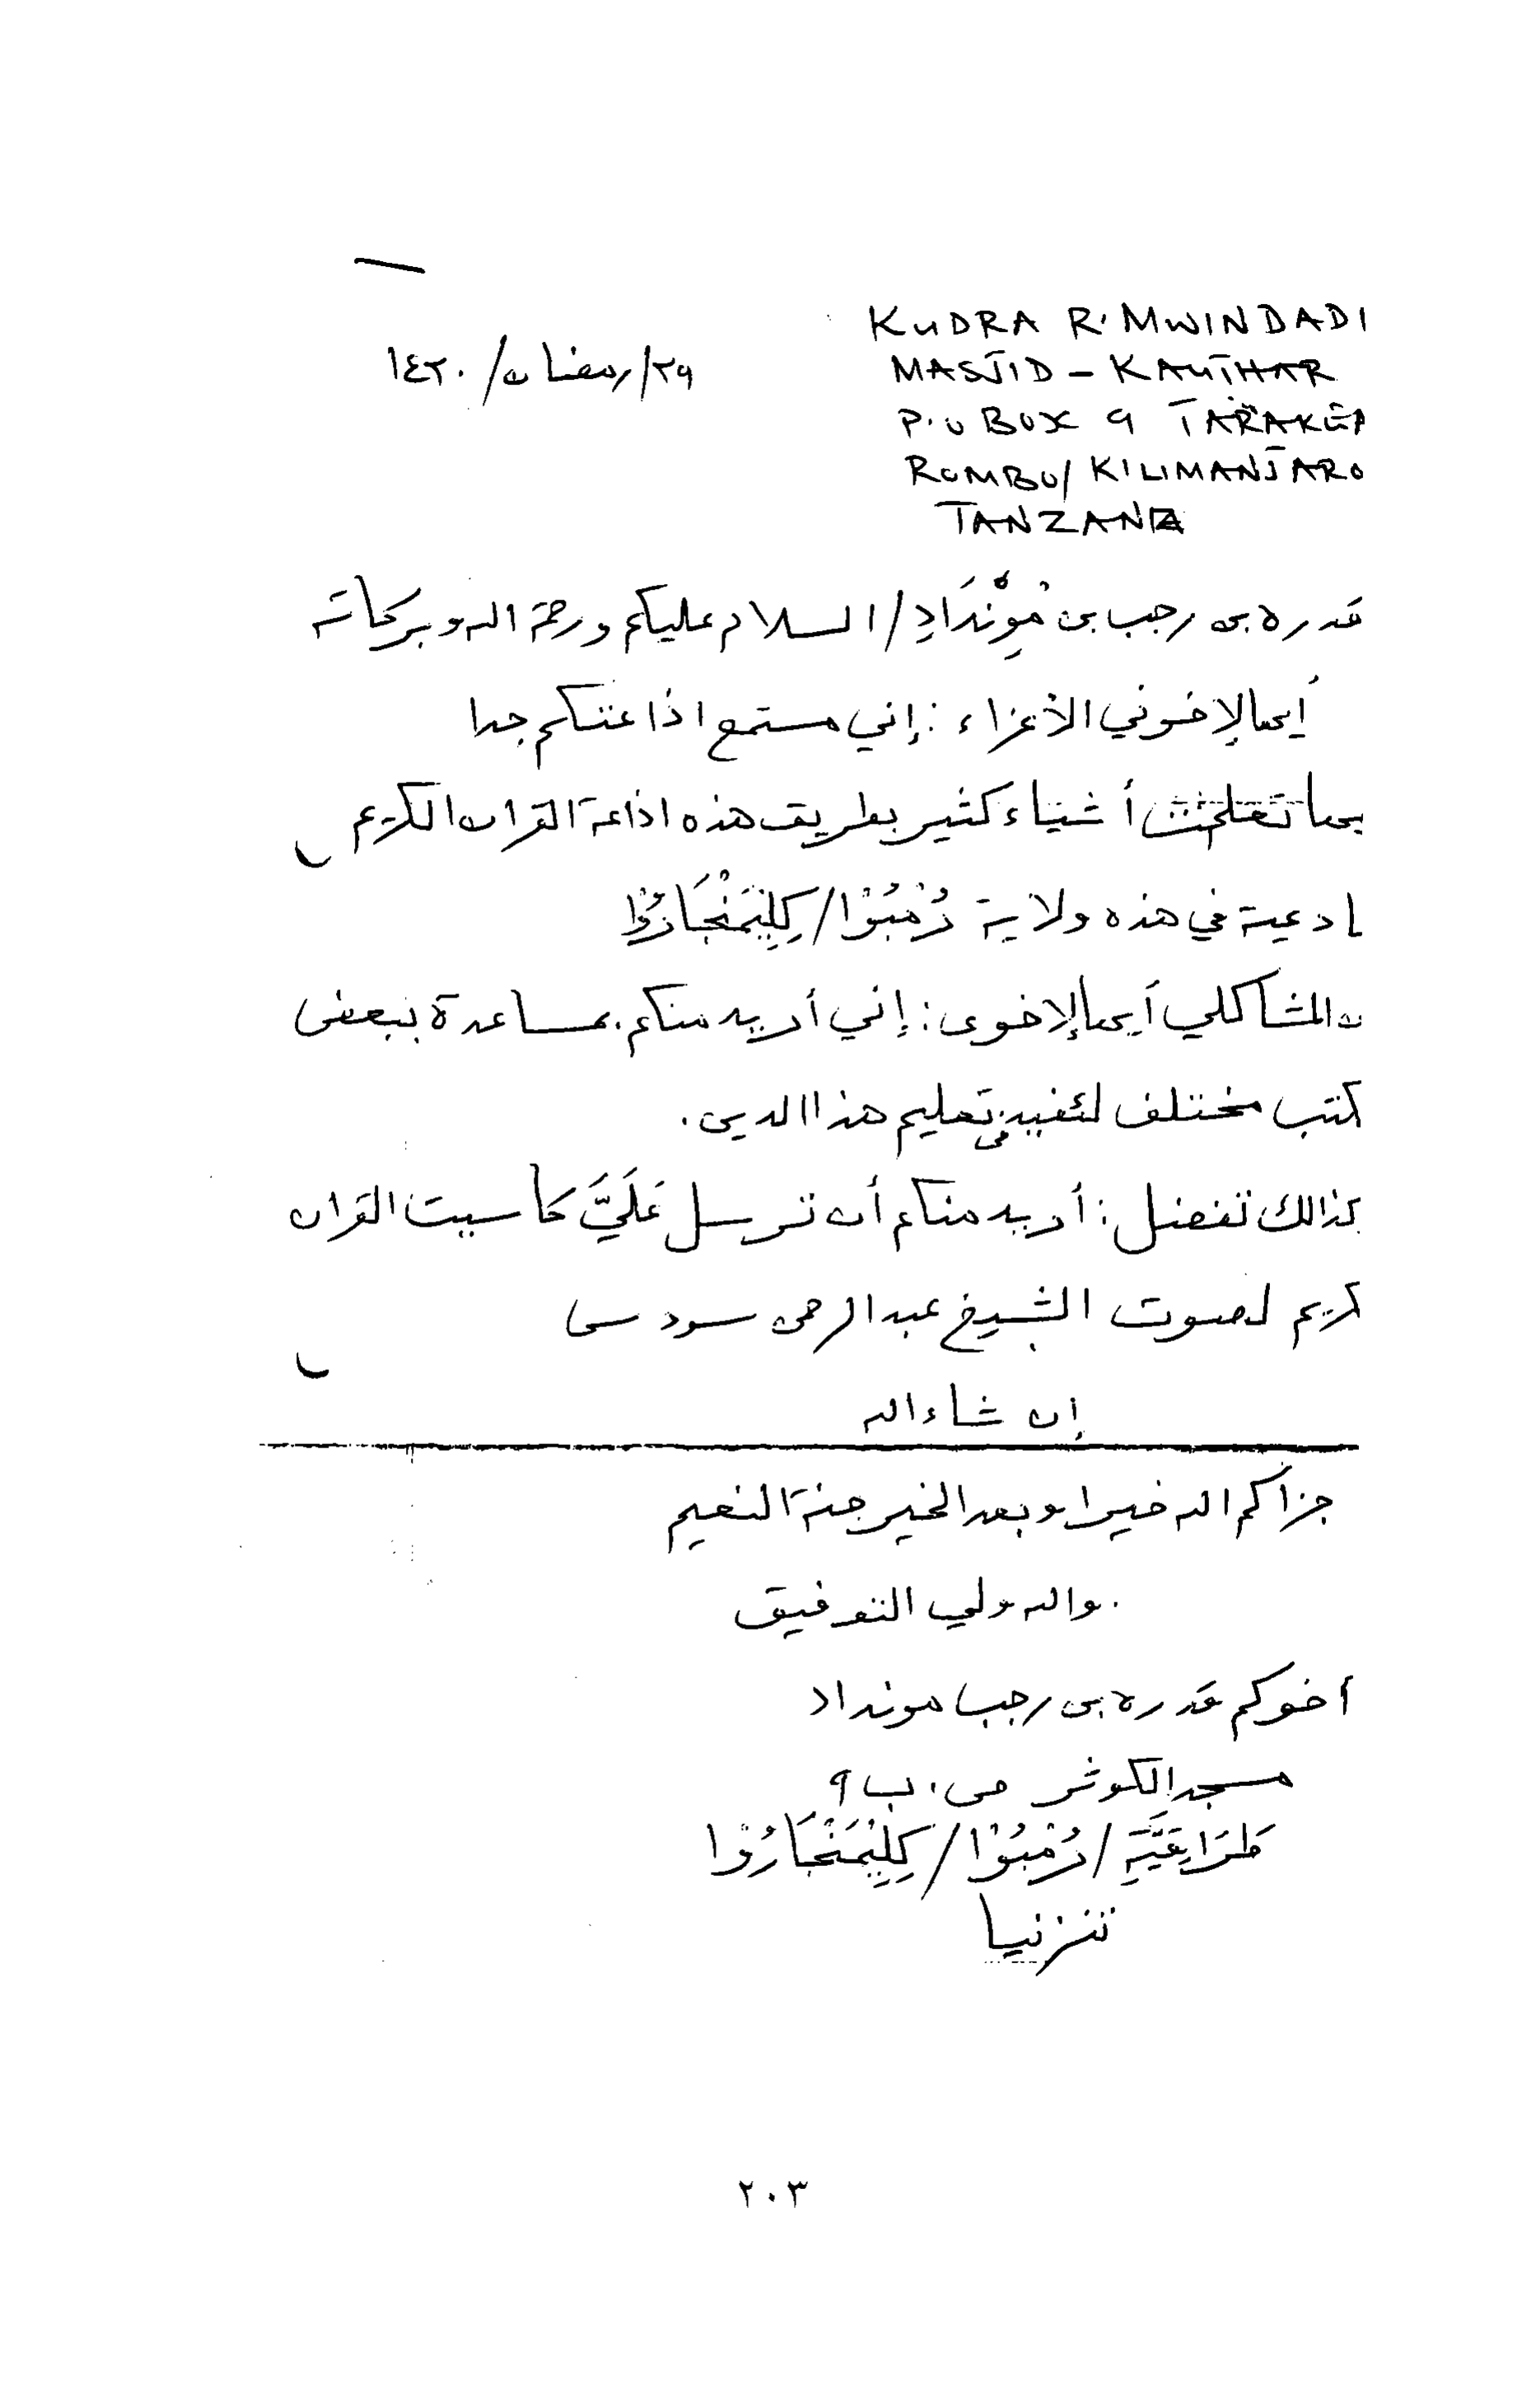 KUDRA R. MWINDADI
٢٩/رمضان/١٤٢٠
MASJID - KAUTHAR
P.O BOX 9 TARAKEA
ROMBO/ KILIMANJARO
TANZANIA
قدره بن رجب بن مِوْنْدَادِ/ السلام عليكم ورحمة الله وبركاته
أيها الإخوني الأعزاء : إني مستمع اذاعتكم جدا
تعلمت أشياء كثير بطريق هذه اذاعة القران الكريم
ادعية في هذه ولاية رُمْبُوْا/ كِلِيْمَنْجَارُوْا
المشاكلي أيها الإخوى : إني أريد منكم بمساعدة ببعض
كتب مختلف لتفيد في تعليم هذا الدين .
كذالك تفضل : أريد منكم أن ترسل عَلَيَّ كاسيت القران
كريم لصوت الشيخ عبد الرحمن سودسى
إن شاء الله
جزاكم الله خيرا وبعد الخير جنة النعيم
. والله ولي التوفيق
أخوكم قدره بن رجب مونداد
مسجد الكوثر ص . ب ٩
طَرَاقِيَّةِ / رُمْبُوْا / كِلِيْمَنْجَارُوْا
تنزنيا
٢٠٣